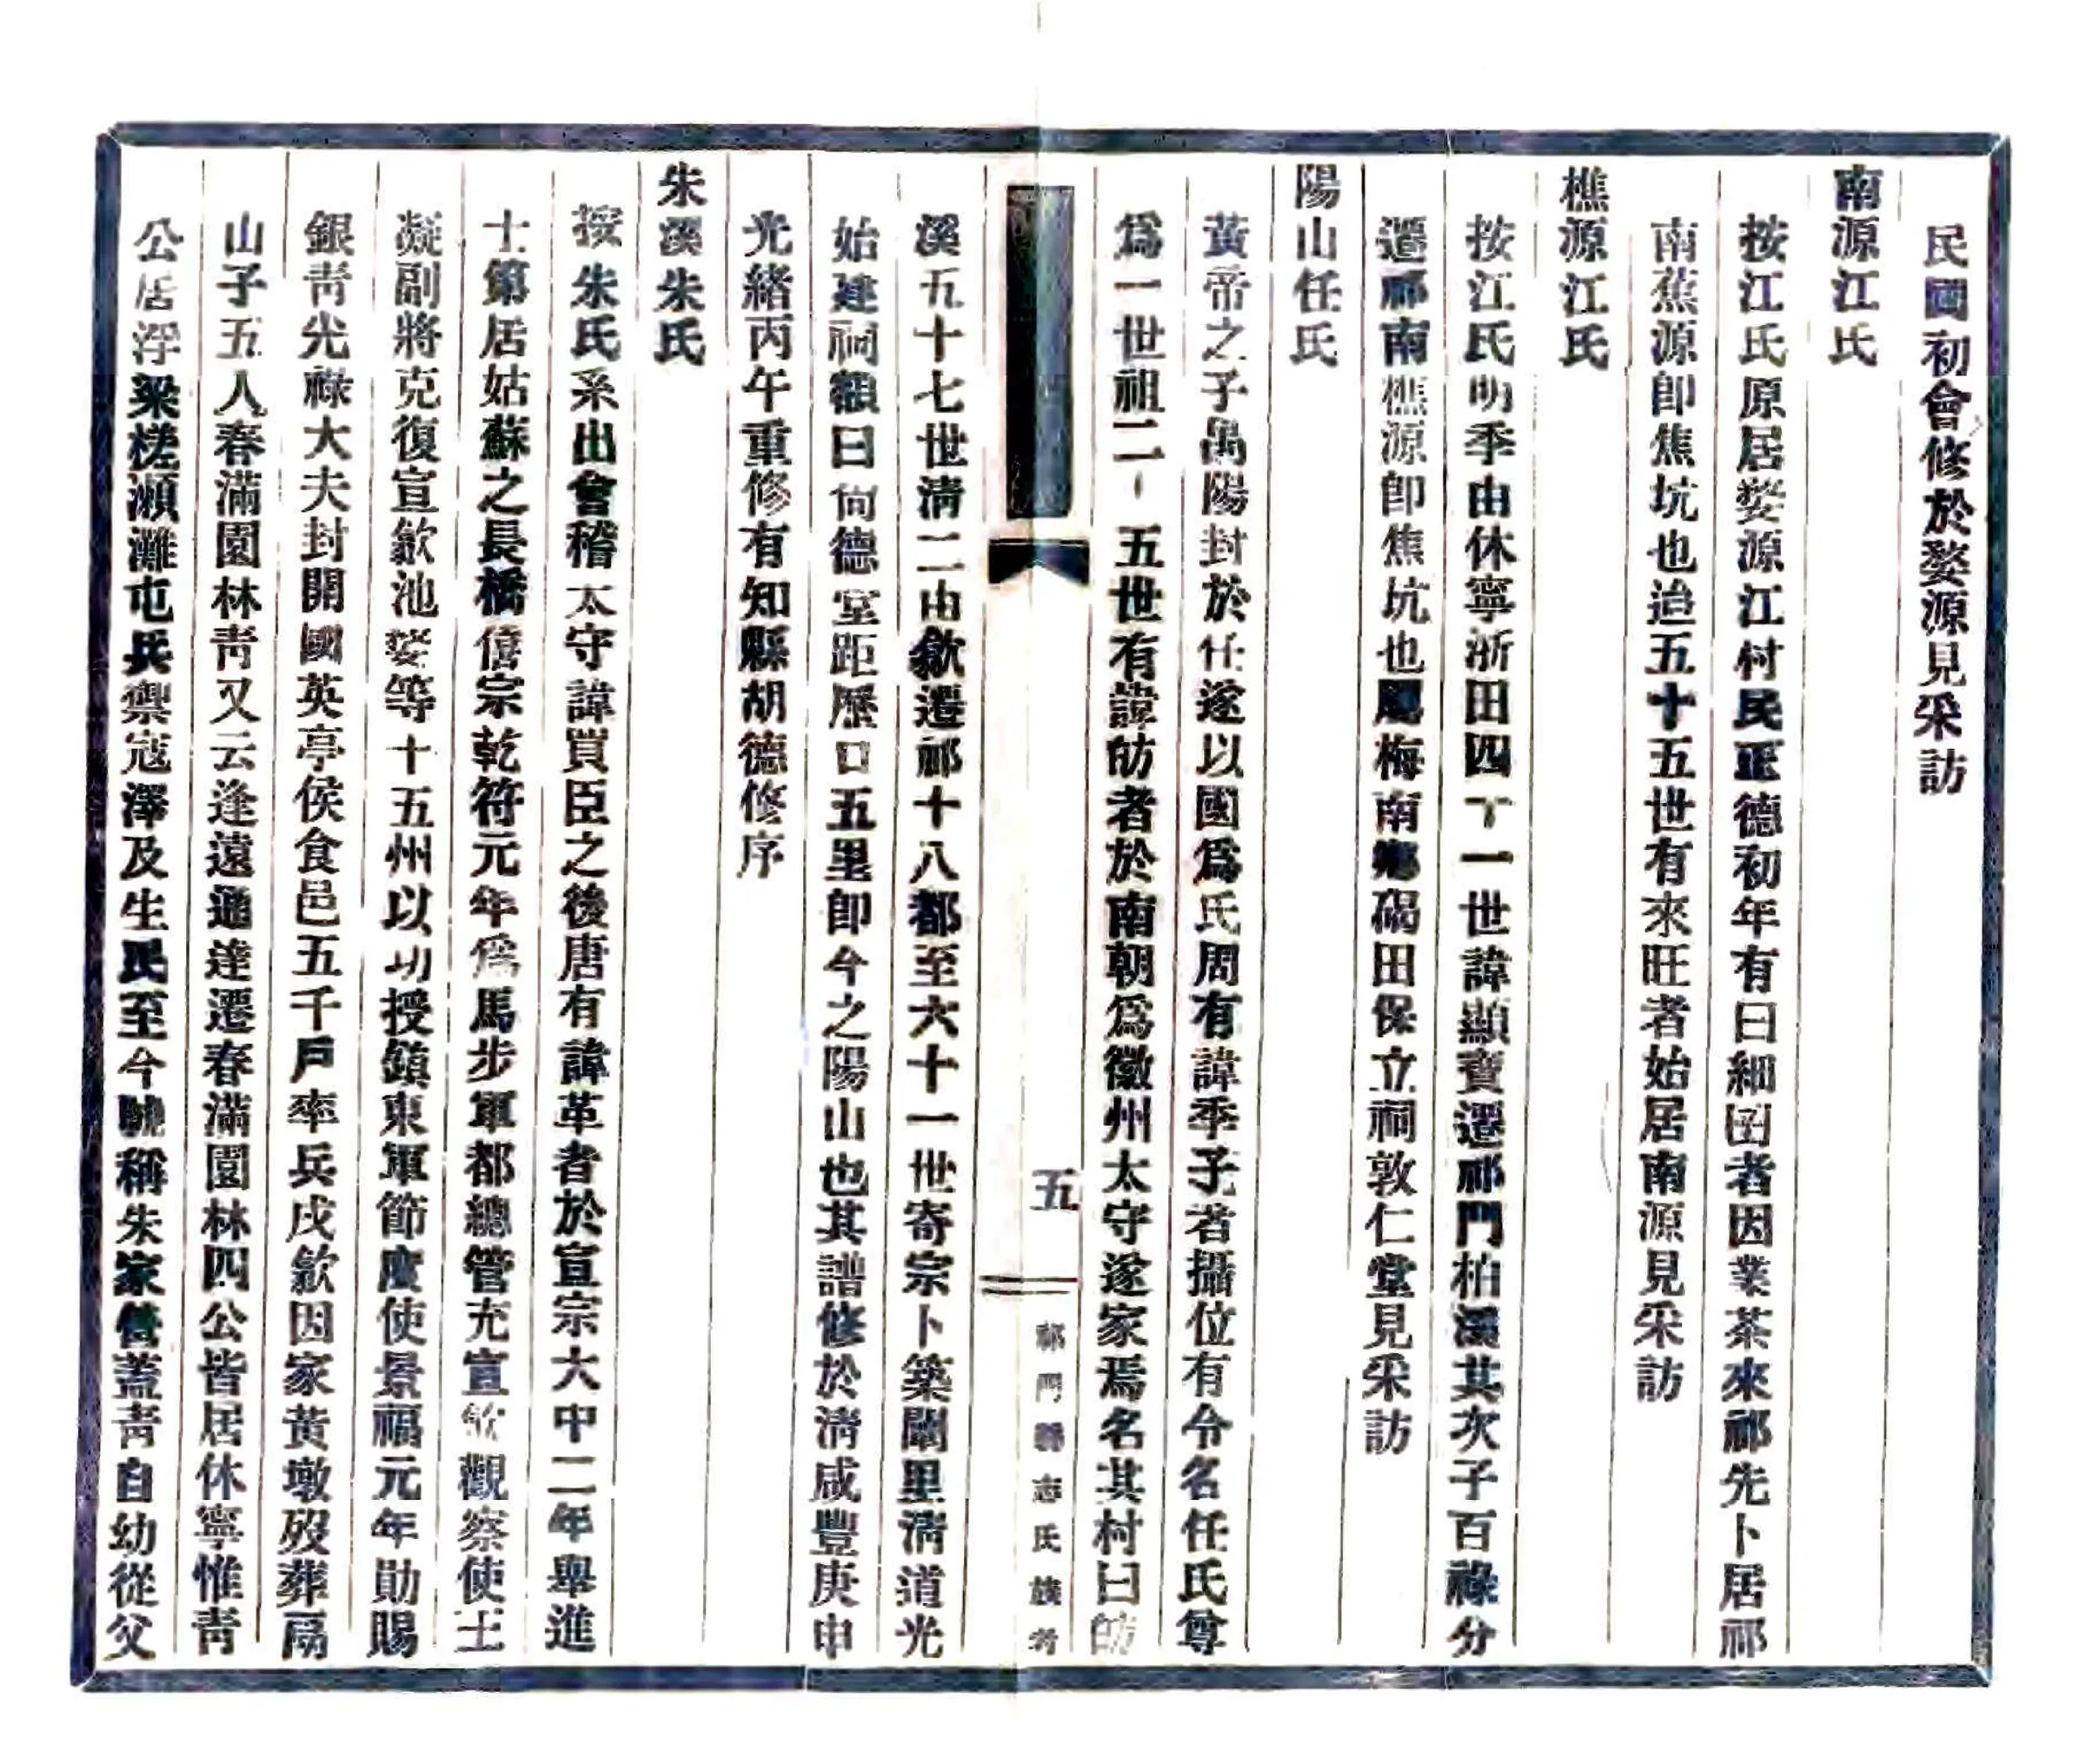 民國初會修於婺源見采訪
南源江氏
按江氏原居婺源江村民正德初年有曰細囝者因業茶來祁先卜居祁
南蕉源卽焦坑也迨五十五世有來旺者始居南源見采訪
樵源江氏
按江氏明季由休寧浙田四十一世諱顯寶遷祁門柏溪其次子百祿分
遷祁南樵源卽焦坑也屬梅南鄉碣田保立祠敦仁堂見采訪
陽山任氏
黃帝之子禺陽封於任遂以國爲氏周有諱季子者攝位有令名任氏尊
爲一世祖二十五世有諱昉者於南朝爲徽州太守遂家焉名其村曰昉
五
祁門縣志氏族考
溪五十七世淸二由歙遷祁十八都至六十一世寄宗卜築閶里淸道光
始建祠額曰尙德堂距歷口五里卽今之陽山也其譜修於淸咸豐庚申
光緖丙午重修有知縣胡德修序
朱溪朱氏
按朱氏系出會稽太守諱買臣之後唐有諱革者於宣宗大中二年舉進
士第居姑蘇之長橋僖宗乾符元年爲馬步軍都總管充宣歙觀察使王
凝副將克復宣歙池婺等十五州以功授鎭東軍節度使景福元年勛賜
銀靑光祿大夫封開國英亭侯食邑五千戶率兵戍歙因家黃墩歿葬扇
山子五人春滿園林靑又云逢遠通達遷春滿園林四公皆居休寧惟靑
公居浮梁槎瀨灘屯兵禦寇澤及生民至今號稱朱家營蓋靑自幼從父